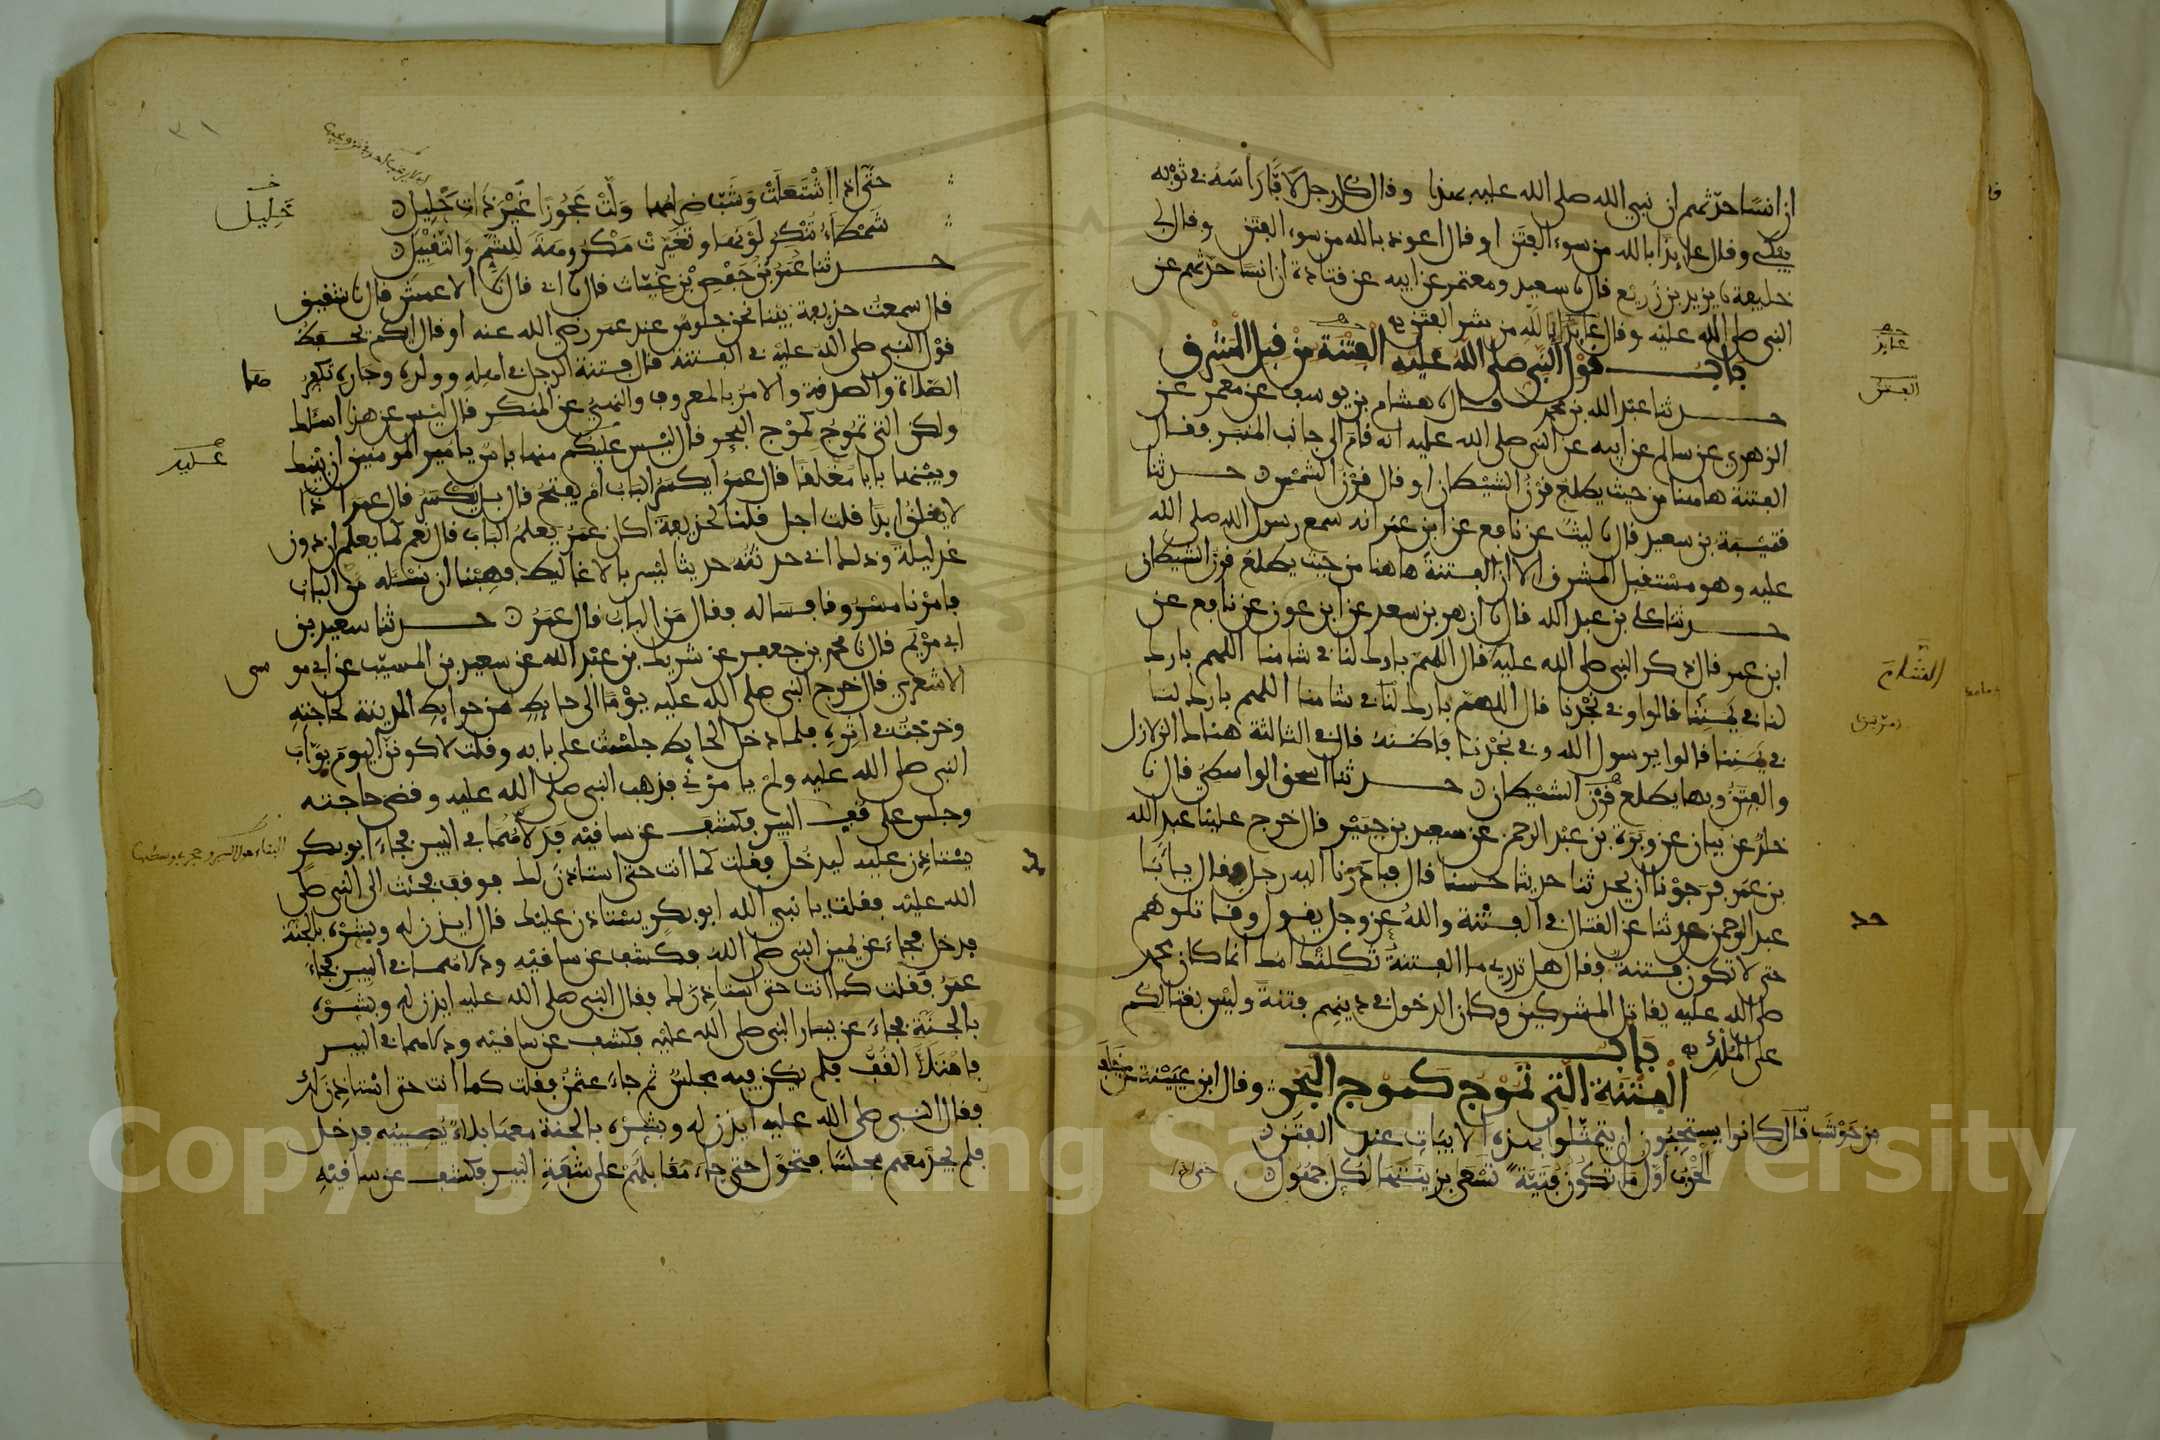 ان انسا حدثهم ان نبي الله صلى الله عليه بهذا وقال كل رجل لافا راسه في ثوبه
يبكي وقال عائذا بالله من سوء الفتن او قال اعوذ بالله من سوء الفتن وقال لي
خليفة نا يزيد بن زريع قال نا سعيد ومعتمر عن ابيه عن قتادة ان انسا حدثهم عن
النبي صلى الله عليه وقال عائذا بالله من شر الفتن
باب قول النبي صلى الله عليه الفتنة من قبل المشرق
حدثنا عبد الله بن محمد قال نا هشام بن يوسف عن معمر عن
الزهري عن سالم عن ابيه عن النبي صلى الله عليه انه قام الى جانب المنبر فقال
الفتنة هاهنا من حيث يطلع قرن الشيطان او قال قرن الشمس حدثنا
قتيبة بن سعيد قال نا ليث عن نافع عن ابن عمر انه سمع رسول الله صلى الله
عليه وهو مستقبل المشرق الا ان الفتنة هاهنا من حيث يطلع قرن الشيطان
حدثنا علي بن عبد الله قال نا ازهر بن سعد عن ابن عون عن نافع عن
ابن عمر قال ذكر النبي صلى الله عليه قال اللهم بارك لنا في شامنا اللهم بارك
لنا في يمننا قالوا وفي نجدنا قال اللهم بارك لنا في شامنا اللهم بارك لنا
في يمننا قالوا يرسول الله وفي نجدنا فاظنه قال في الثالثة هناك الزلازل
والفتن وبها يطلع قرن الشيطان حدثنا اسحق الواسطي قال نا
خلد عن بيان عن وبرة بن عبد الرحمن عن سعيد بن جبير قال خرج علينا عبد الله
بن عمر فرجونا ان يحدثنا حديثا حسنا قال فبادرنا اليه رجل فقال يا با
عبد الرحمن حدثنا عن القتال في الفتنة والله عز وجل يقول وقاتلوهم
حتى لا تكون فتنة فقال هل تدري ما الفتنة ثكلتك امك انما كان محمد
صلى الله عليه يقاتل المشركين وكان الدخول في دينهم فتنة وليس بقتالكم
على الملك باب
الفتنة التي تموج كموج البحر وقال ابن عيينة عن خلف
بن حوشب قال كانوا يستحبون ان يتمثلوا بهذه الابيات عند الفتن
الحرب اول ما تكون فتية تسعى بزينتها لكل جهول
عائذ
الفتن
الشام
حد
حتى اذا اشتعلت وشب ضرامها ولت عجوزا غير ذات حليل
شمطاء تنكر لونها وتغيرت مكروهة للشم والتقبيل
حدثنا عمر بن حفص بن غياث قال نا ابي قال نا الاعمش قال نا شقيق
قال سمعت حذيفة بينا نحن جلوس عند عمر رضي الله عنه اذ قال ايكم يحفظ
قول النبي صلى الله عليه في الفتنة قال فتنة الرجل في اهله وولده وجاره تكفر
الصلاة والصدقة والامر بالمعروف والنهي عن المنكر قال ليس عن هذا اسئلك
ولكن التي تموج كموج البحر قال ليس عليكم منها باس يا امير المومنين ان بينك
وبينها بابا مغلقا قال عمر ايكسر الباب ام يفتح قال بل يكسر قال عمر اذا
لا يغلق ابدا قلت اجل قلنا لحذيفة اكان عمر يعلم الباب قال نعم كما يعلم ان دون
غد ليلة وذلك اني حدثته حديثا ليس بالاغاليط فهبنا ان نسئله من الباب
فامرنا مسروقا فساله فقال من الباب قال عمر حدثنا سعيد بن
ابي مريم قال نا محمد بن جعفر عن شريك بن عبد الله عن سعيد بن المسيب عن ابي مو
سى
الاشعري قال خرج النبي صلى الله عليه يوما الى حايط من حوايط المدينة لحاجته
وخرجت في اثره فلما دخل الحايط جلست على بابه وقلت لاكونن اليوم بواب
النبي صلى الله عليه ولم يامرني فذهب النبي صلى الله عليه وقضى حاجته
وجلس على قف البير فكشف عن ساقيه فدلاهما في البير فجاء ابو بكر
يستاذن عليه ليدخل فقلت كما انت حتى استاذن لك فوقف فجئت الى النبي صلى
الله عليه فقلت يا نبي الله ابو بكر يستاذن عليك قال ايذن له وبشره بالجنة
فدخل فجاء عن يمين النبي صلى الله فكشف عن ساقيه ودلاهما في البير فجاء
عمر فقلت كما انت حتى استاذن لك فقال النبي صلى الله عليه ايذن له وبشره
بالجنة فجاء عن يسار النبي صلى الله عليه فكشف عن ساقيه ودلاهما في البير
فامتلا القف فلم يكن فيه مجلس ثم جاء عثمن فقلت كما انت حتى استاذن لك
فقال النبي صلى الله عليه ايذن له وبشره بالجنة معها بلاء يصيبه فدخل
فلم يجد معهم مجلسا فتحول حتى جاء مقابلهم على شفة البير فكشف عن ساقيه
خليل
عليه
Copyright © King Saud University